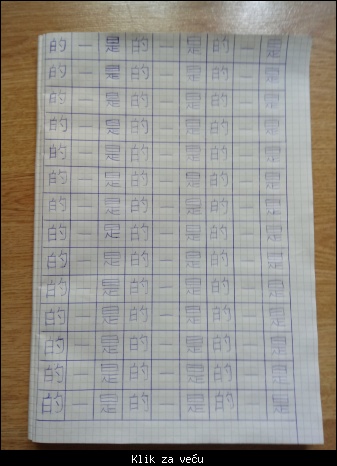 的一是的一是的一是
的一是的一是的一是
的一是的一是的一是
的一是的一是的一是
的一是的一是的一是
的一是的一是的一是
的一是的一是的一是
的一是的一是的一是
的一是的一是的一是
的一是的一是的一是
的一是的一是的一是
的一是的一是的一是
的一是的一是的一是
的一是的一是的一是
Klik za veću